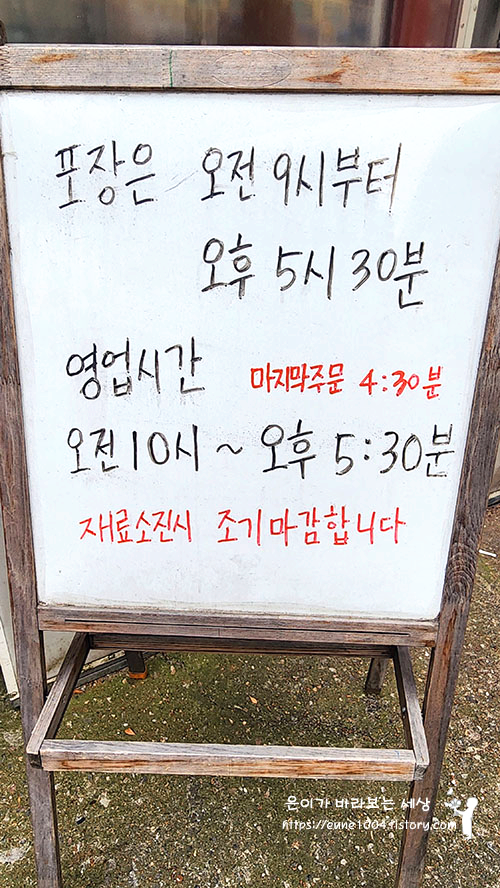 포장은 오전 9시부터
오후 5시 30분
영업시간 마지막주문 4:30분
오전 10시 ~ 오후 5:30분
재료소진시 조기마감합니다
은이가 바라보는 세상
https://eune1004.tistory.com